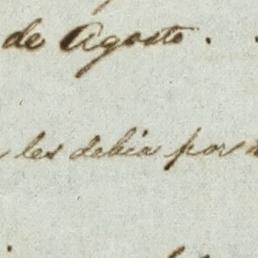 de Agosto.
les debia por